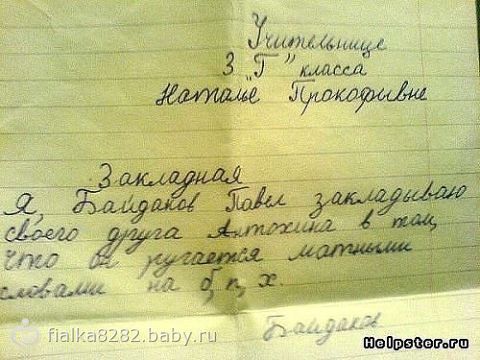 Учительнице
3 "Г" класса
Наталье Прокофивне
Закладная
Я, Байдаков Павел закладываю
своего друга Антохина в том,
что он ругается матными
словами на б, п, х.
Байдаков
fialka8282.baby.ru
Helpster.ru